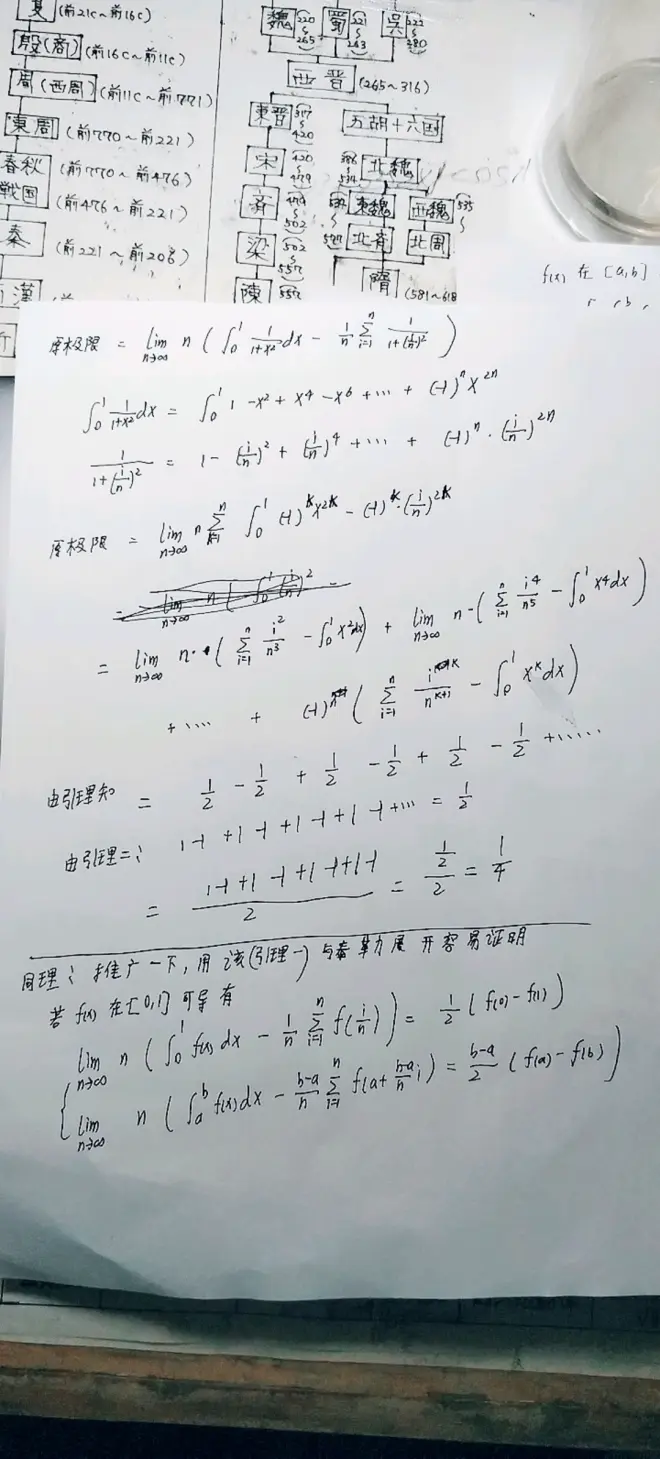 夏 (前21C~前16C)
殷(商) (前16C~前11C)
周(西周) (前11C~前771)
東周 (前770~前221)
春秋 (前770~前476)
戦国 (前476~前221)
秦 (前221~前206)
漢
魏 220~265 蜀 221~263 吳 222~280
西晋 (265~316)
東晋 317~420 五胡十六国
宋 420~479 北魏 386~534
斉 479~502 東魏 西魏 535~
梁 502~557 北斉 北周
陳 557 隋 (581~618
f(x) 在 [a,b]
原极限 = lim n→∞ n ( ∫₀¹ 1/(1+x²) dx - 1/n Σᵢ₌₁ⁿ 1/(1+(i/n)²) )
∫₀¹ 1/(1+x²) dx = ∫₀¹ 1 - x² + x⁴ - x⁶ + ··· + (-1)ⁿ x²ⁿ
1/(1+(i/n)²) = 1 - (i/n)² + (i/n)⁴ + ··· + (-1)ⁿ · (i/n)²ⁿ
原极限 = lim n→∞ n Σ ∫₀¹ (-1)ᵏ x²ᵏ - (-1)ᵏ · (i/n)²ᵏ
= lim n→∞ n · ( Σᵢ₌₁ⁿ i²/n³ - ∫₀¹ x² dx ) + lim n→∞ n · ( Σᵢ₌₁ⁿ i⁴/n⁵ - ∫₀¹ x⁴ dx )
+ ···· + (-1) ( Σᵢ₌₁ⁿ iᵏ/nᵏ⁺¹ - ∫₀¹ xᵏ dx )
由引理知 = 1/2 - 1/2 + 1/2 - 1/2 + 1/2 - 1/2 + ·····
由引理二: 1-1+1-1+1-1+1-1+··· = 1/2
= (1-1+1-1+1-1+1-1)/2 = (1/2)/2 = 1/4
同理: 推广一下, 用该(引理一)与泰勒展开容易证明
若 f(x) 在 [0,1] 可导有
lim n→∞ n ( ∫₀¹ f(x) dx - 1/n Σᵢ₌₁ⁿ f(i/n) ) = 1/2 ( f(0) - f(1) )
lim n→∞ n ( ∫ₐᵇ f(x) dx - (b-a)/n Σᵢ₌₁ⁿ f(a + (b-a)/n i ) = (b-a)/2 ( f(a) - f(b) )